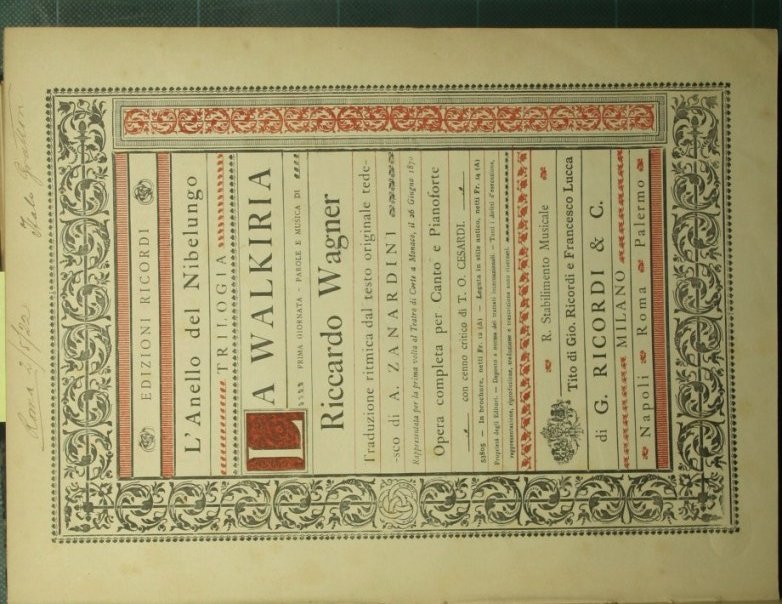 EDIZIONI RICORDI
L'Anello del Nibelungo
TRILOGIA
LA WALKIRIA
PRIMA GIORNATA - PAROLE E MUSICA DI
Riccardo Wagner
Traduzione ritmica dal testo originale tede-
-sco di A. ZANARDINI
Rappresentata per la prima volta al Teatro di Corte a Monaco, il 26 Giugno 1870
Opera completa per Canto e Pianoforte
con cenno critico di T. O. CESARDI.
53805 — In brochure, netti Fr. 12 (A) — Legata in stile antico, netti Fr. 14 (A)
Proprietà degli Editori. — Deposto a norma dei trattati internazionali. — Tutti i diritti d'esecuzione,
rappresentazione, riproduzione, traduzione e trascrizione sono riservati.
R. Stabilimento Musicale
Tito di Gio. Ricordi e Francesco Lucca
di G. RICORDI & C.
MILANO
Napoli Roma Palermo
Roma